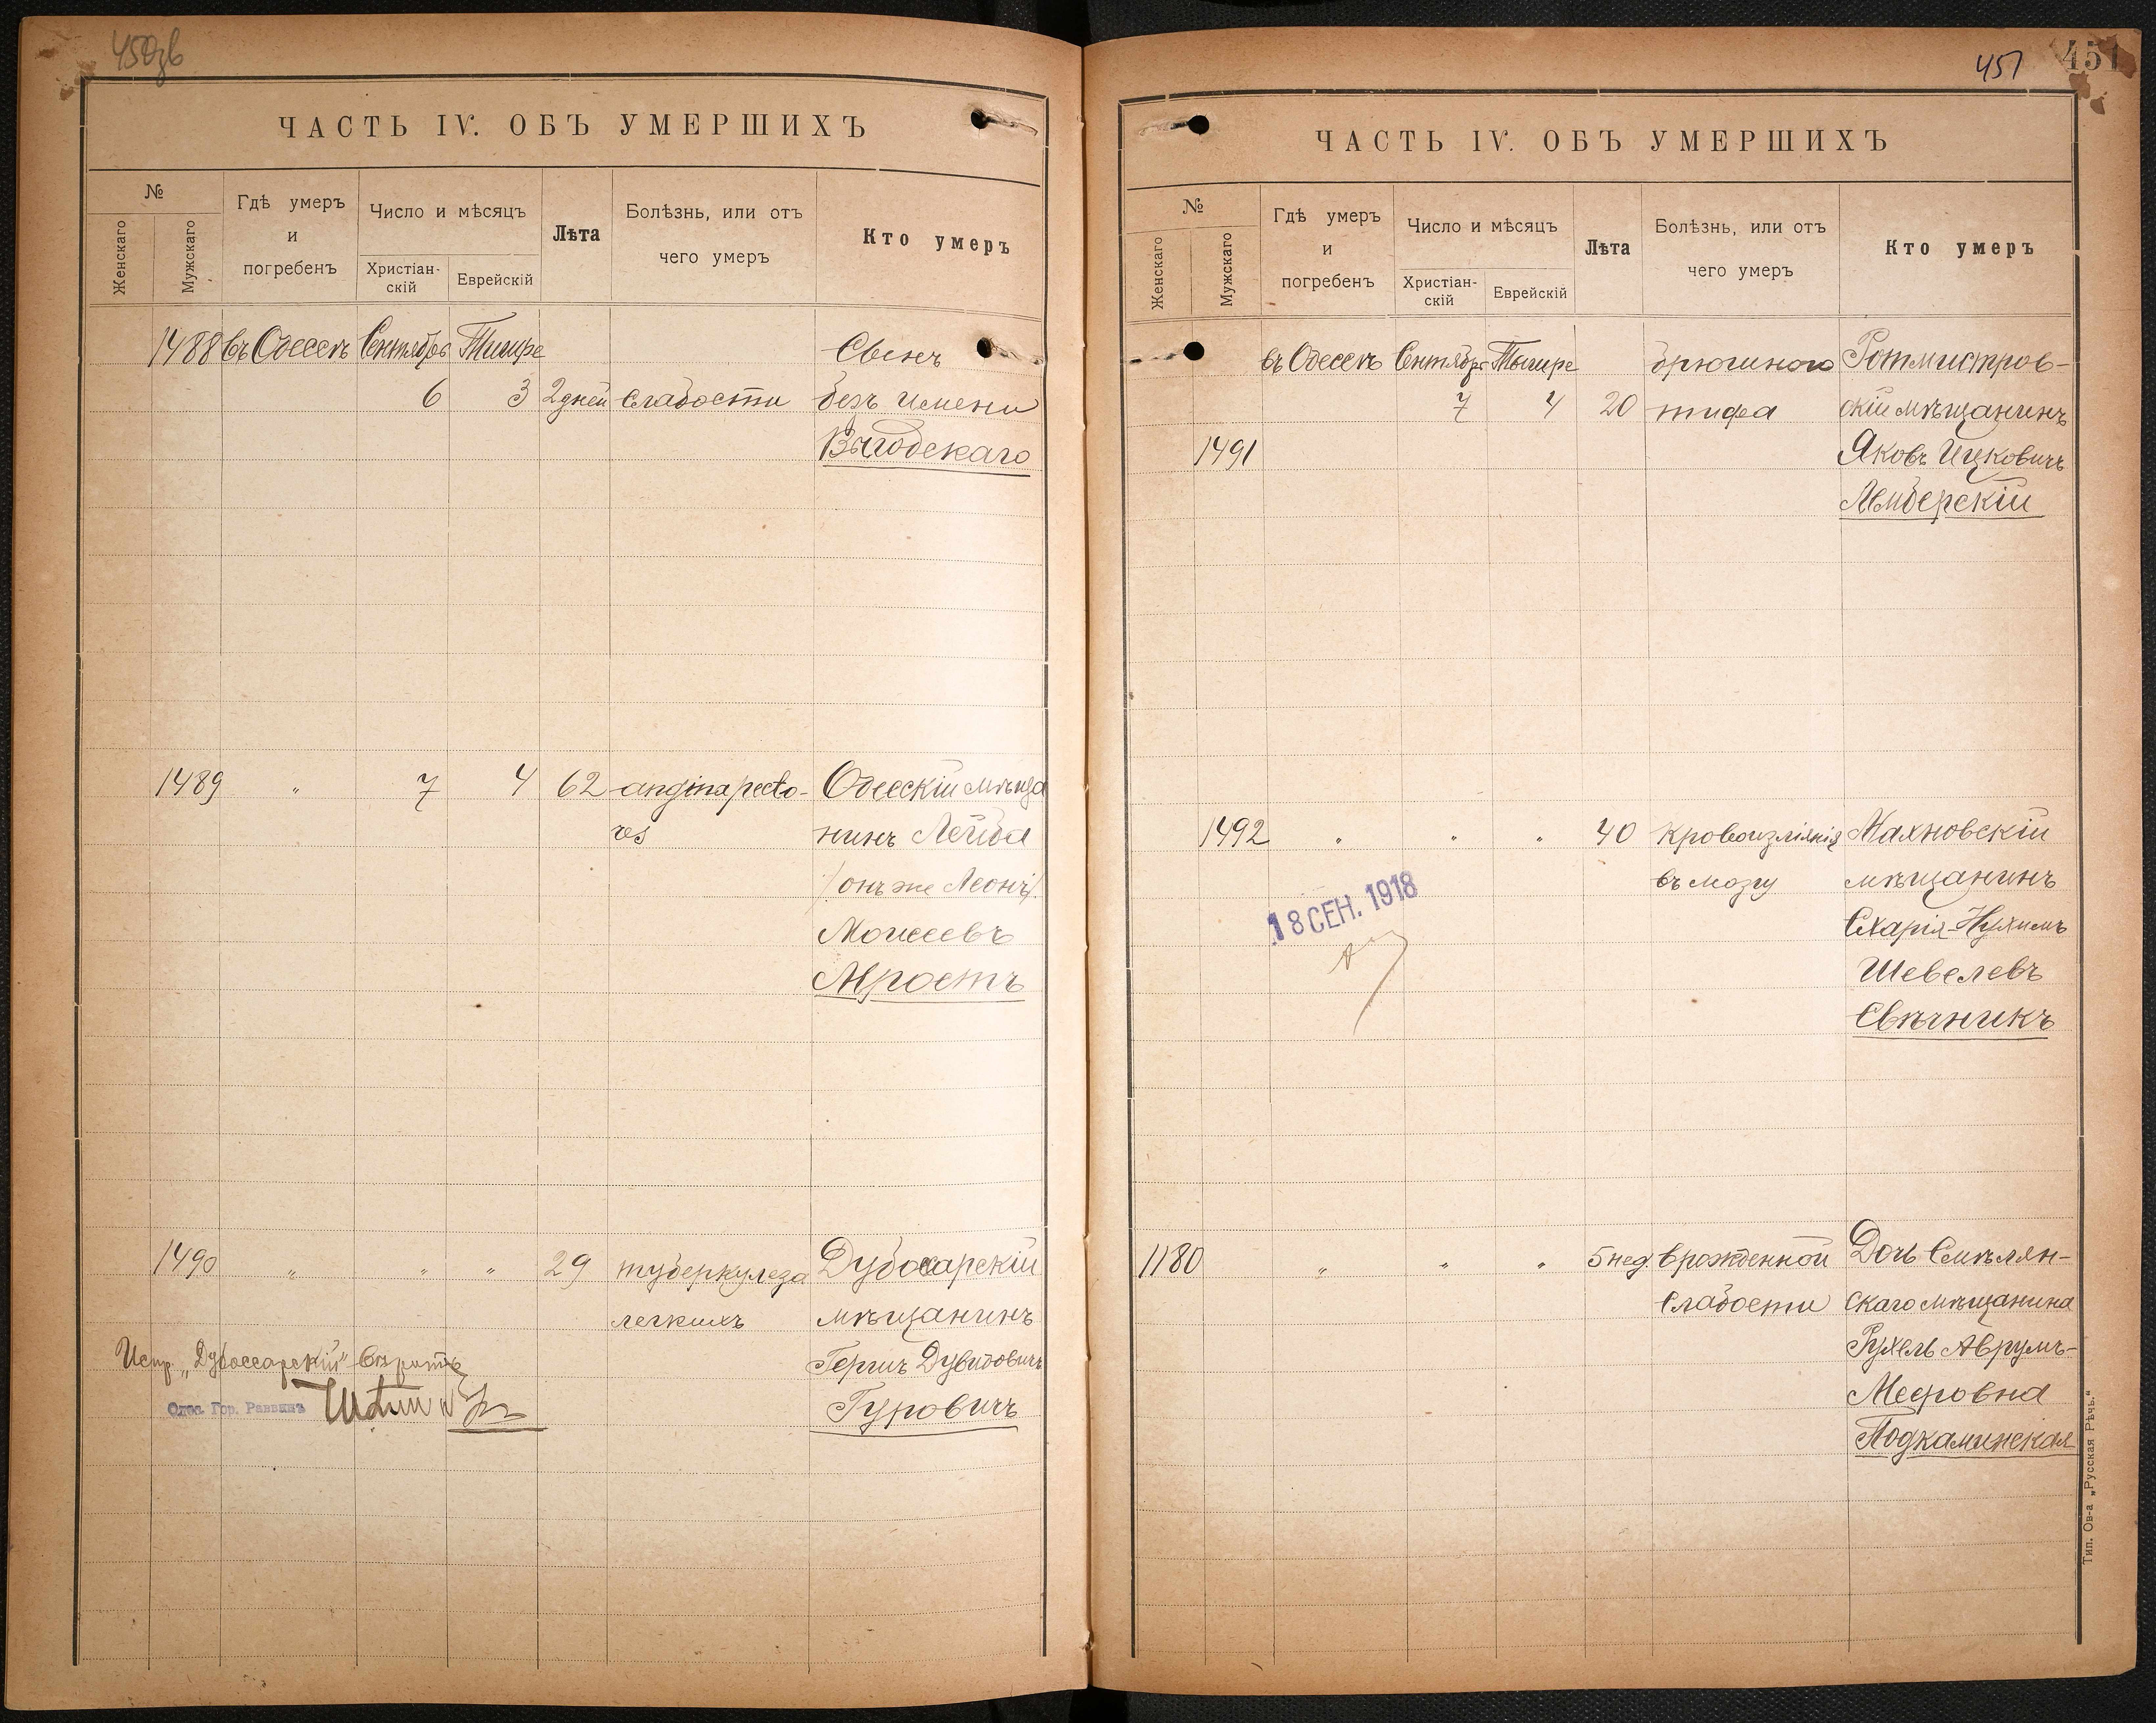 450зв
ЧАСТЬ IV. ОБЪ УМЕРШИХЪ
№
Женскаго
Мужскаго
Гдѣ умеръ
и
погребенъ
Число и мѣсяцъ
Христіан-
скій
Еврейскій
Лѣта
Болѣзнь, или отъ
чего умеръ
Кто умеръ
1488 въ Одессѣ Сентябрь Тишре Сынъ
6 3 2 дней слабости безъ имени
Выгодскаго
1489 " 7 4 62 angina pecto- Одесскій мѣща
res нинъ Лейба
(онъ же Леонъ)
Моисеевъ
Мростъ
1490 " " " 29 туберкулеза Дубоссарскій
легкихъ мѣщанинъ
Гершъ Дувидовичъ
Гуровичъ
Испр. „Дубоссарскій" вѣрить
Одес. Гор. Раввинъ
457 451
ЧАСТЬ IV. ОБЪ УМЕРШИХЪ
№
Женскаго
Мужскаго
Гдѣ умеръ
и
погребенъ
Число и мѣсяцъ
Христіан-
скій
Еврейскій
Лѣта
Болѣзнь, или отъ
чего умеръ
Кто умеръ
въ Одессѣ Сентябрь Тишре брюшного Ротмистров-
7 4 20 тифа скій мѣщанинъ
1491 Яковъ Ицковичъ
Лемберскій
1492 " " " 40 кровоизліянія Махновскій
въ мозгу мѣщанинъ
18 СЕН. 1918
Схарія-Нухимъ
Шевелевъ
Свѣчникъ
1180 " " " 5 нед врожденной Дочь Смѣлян-
слабости скаго мѣщанина
Рухель Аврумъ-
Мееровна
Подкаминская
Тип. Ов-а „Русская Рѣчь."